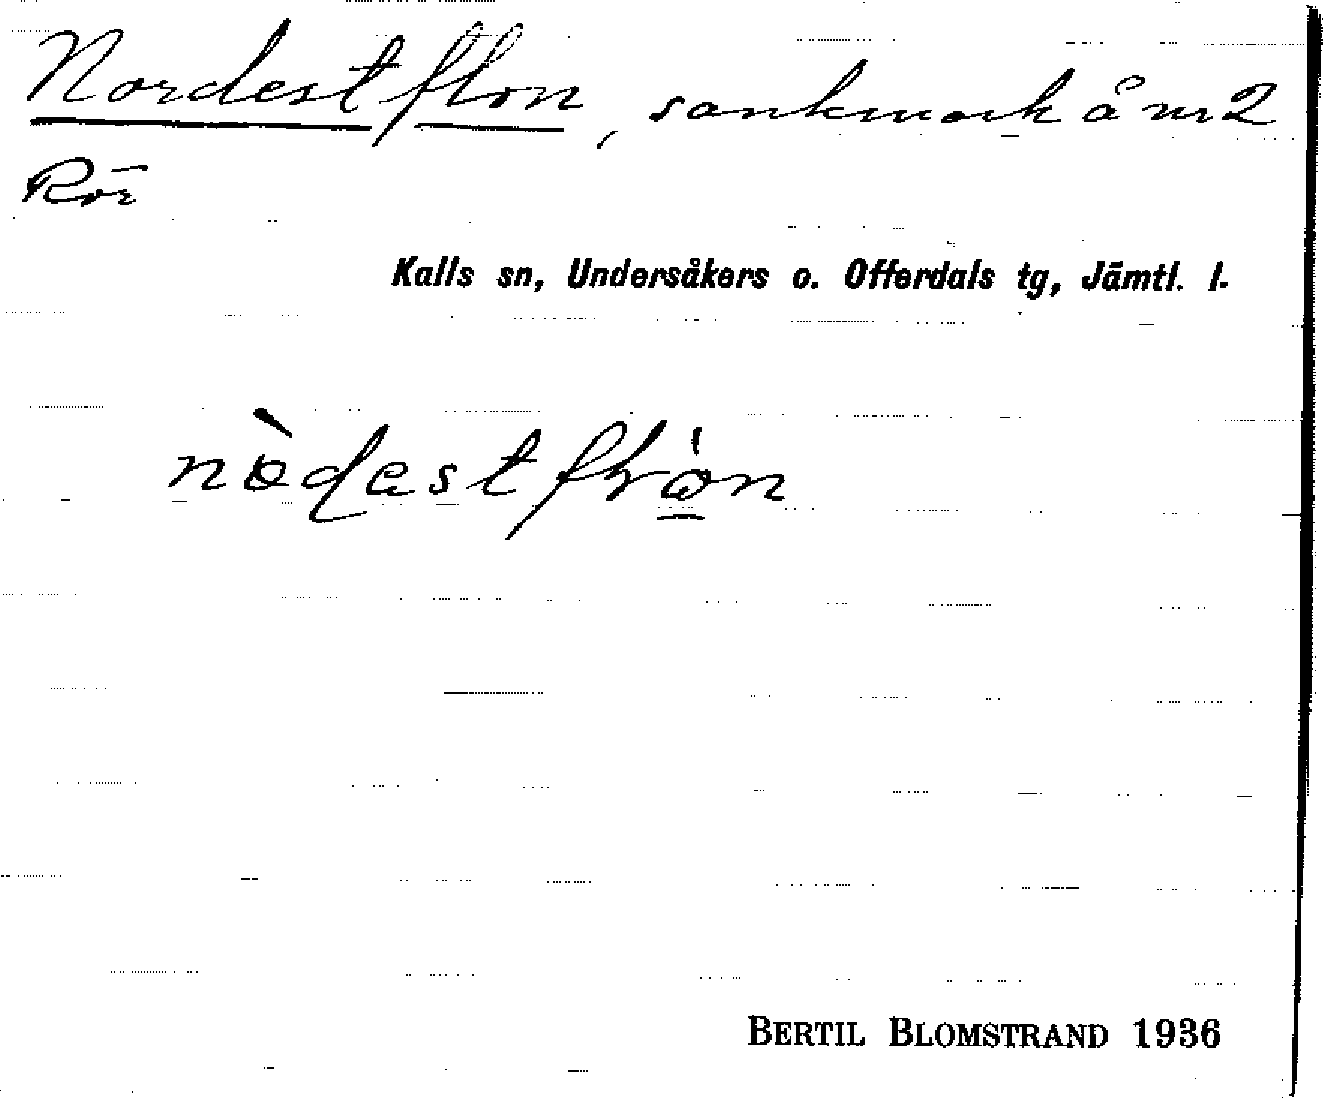 Nordestflon, sankmark å nr 2
Rör
Kalls sn, Undersåkers o. Offerdals tg, Jämtl. l.
BERTIL BLOMSTRAND 1936